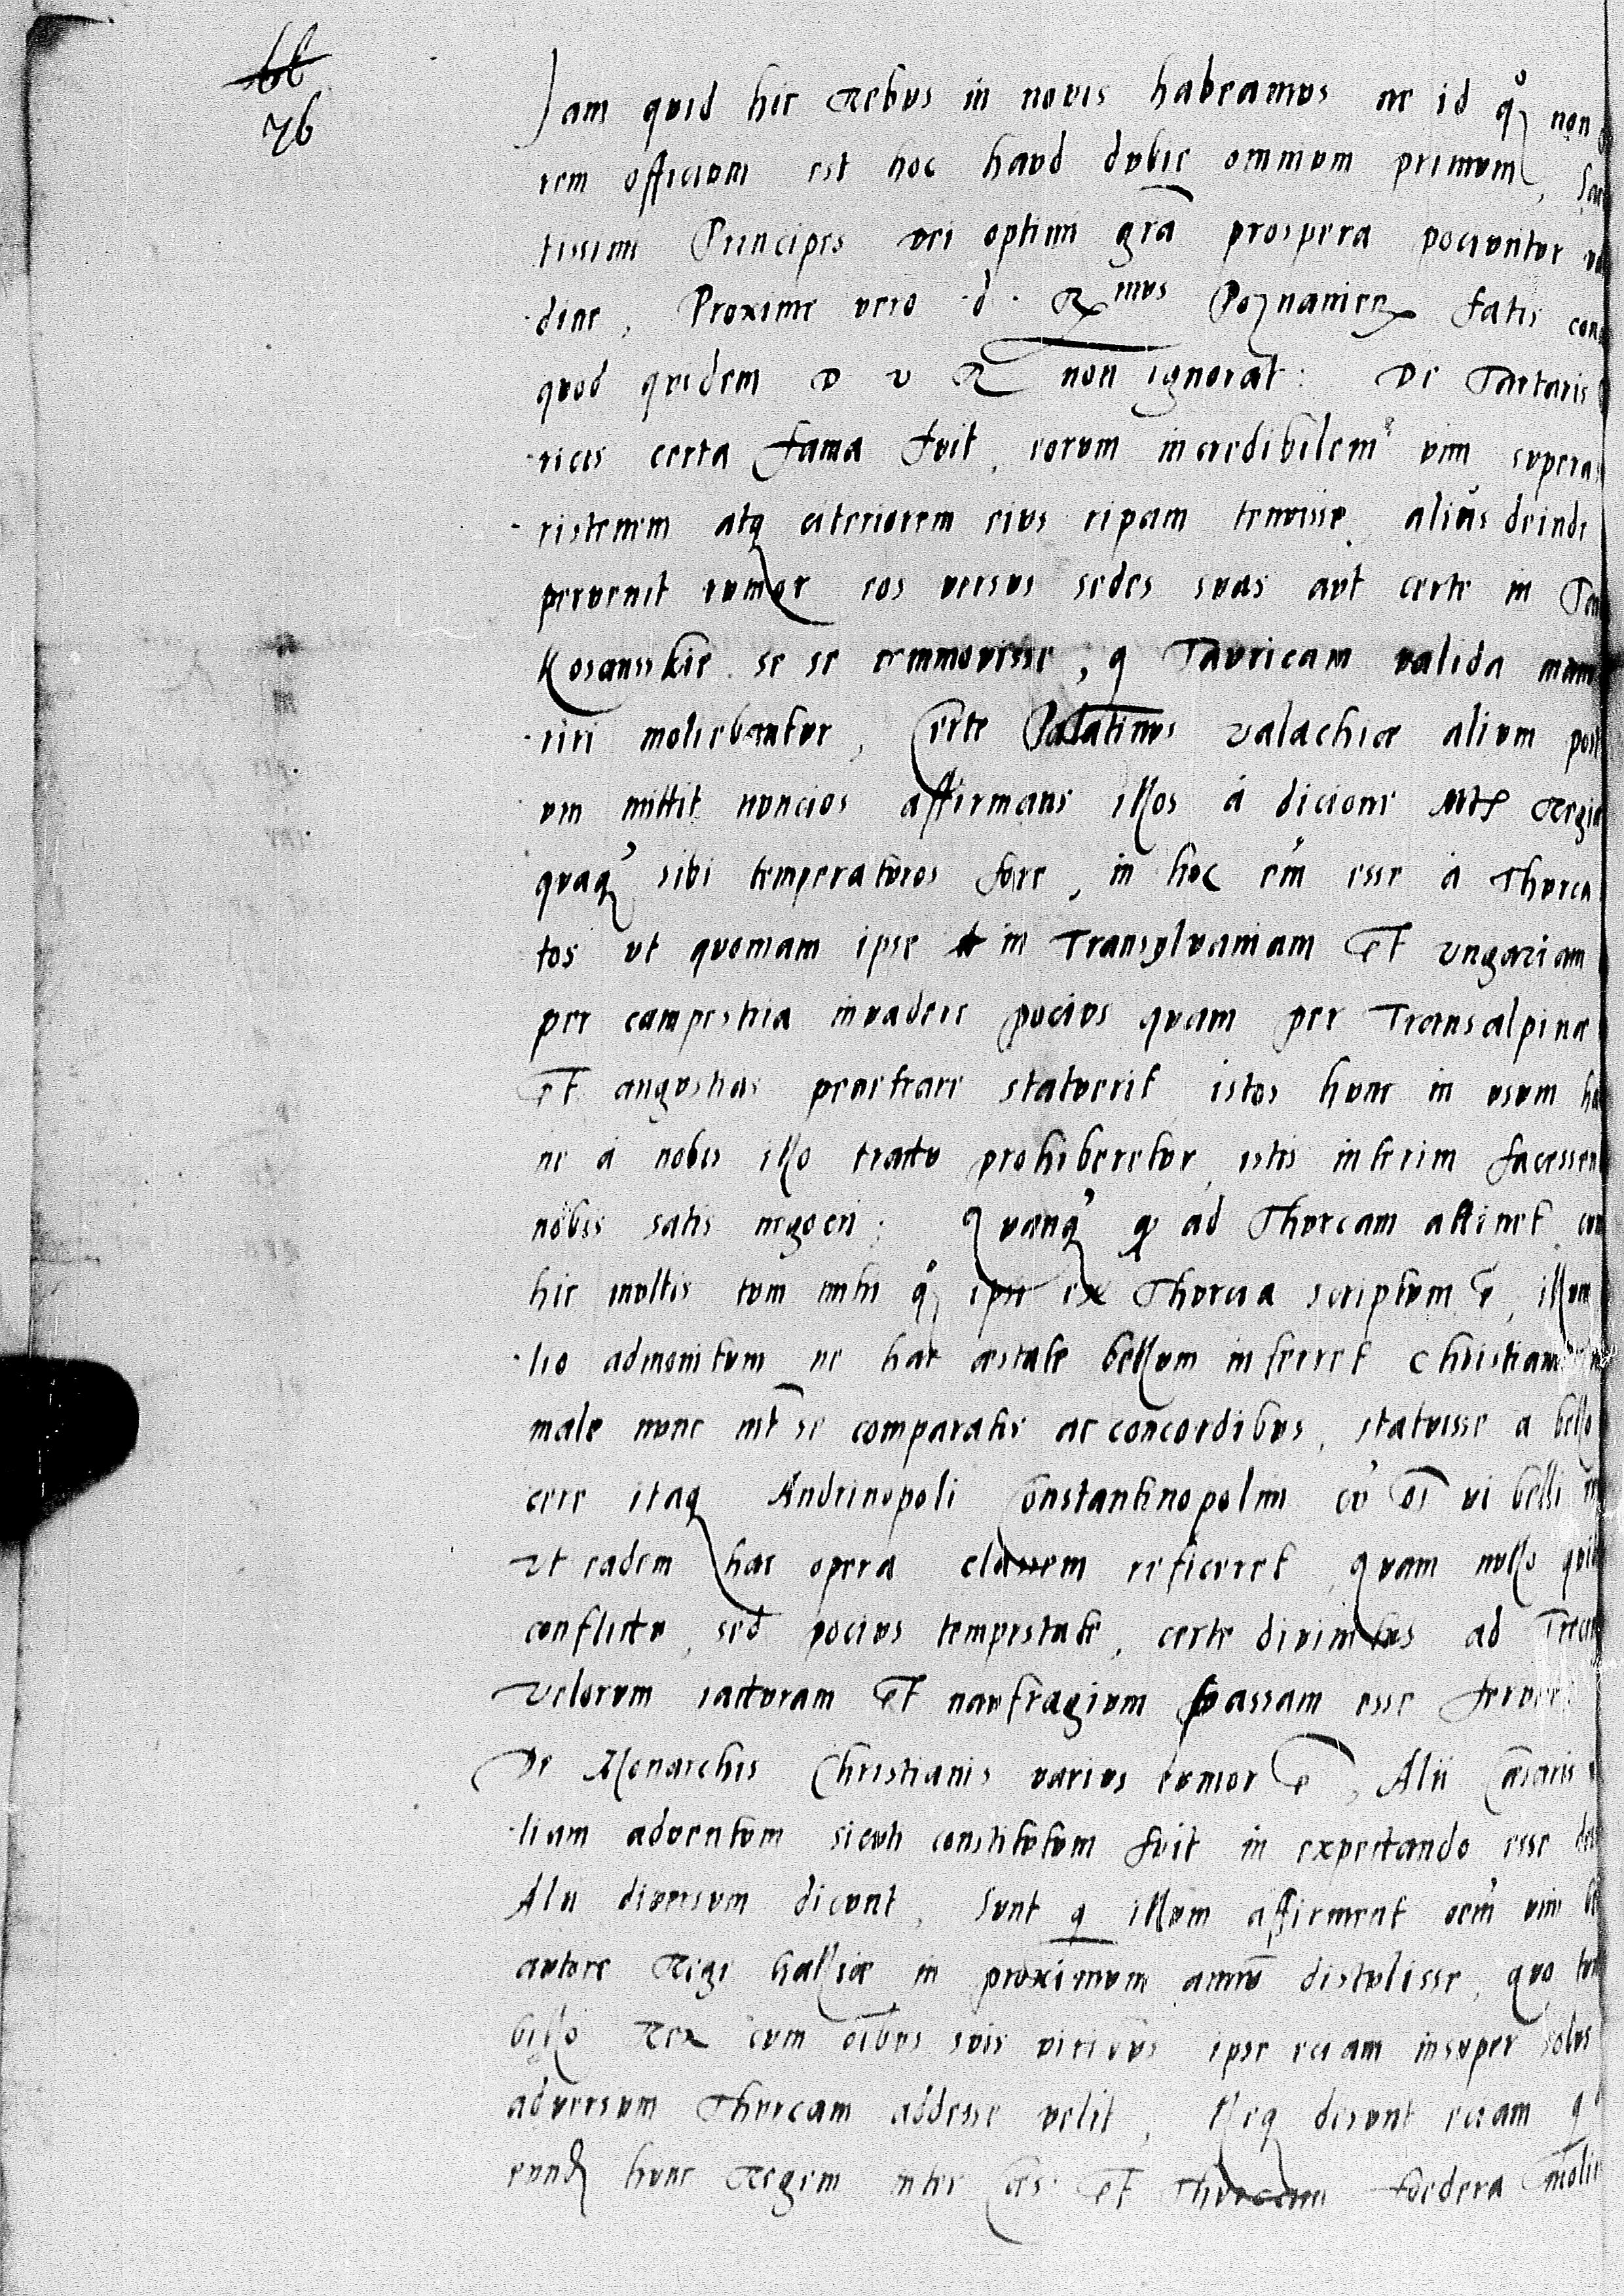 76
Jam quid hic rebus in novis habeamus ac id q̊ȝ non
rem officium est hoc haud dubie omnium primum,
tissimi Principes dei optimi gr̄a prospera pociuntur
dine, Proxime vero d. Rmus Poznanien fatis
quod quidem D V R non ignorat: De Tartaris
ricis certa fama fuit, eorum incredibilem vim supera
ristenem atq citeriorem eius ripam tenuisse, alius deinde
pervenit rumor eos versus sedes suas aut certe in
Kosansskie se se emmovisse, q Tauricam valida manu
riri moliebantur, Certe Palatinus Valachiæ alium post
um mittit nuncios affirmans illos á dicione Mtis Regia
quaq sibi temperaturos fore, in hoc em̄ esse á Thurca
tos ut quoniam ipse in Transylvaniam et Ungariam
per campestria invadere pocius quam per Transalpina
et angustias penetrare statuerit istos hunc in usum
ne á nobis illo tractu prohiberetur, istis interim facessen
nobis satis negocii: Quanq̄ qđ ad Thurcam attinet
hic multis tum mihi q̊ȝ ipsi ex Thurcia scriptum ē, illum
lio admonitum ne hac æstate bellum inferret Christian
male nunc int̄ se comparatis ac concordibus, statuisse a bello
cere itaq Andrinopoli Constantinopolim cū oī vi belli
ut eadem hac opera classem reficeret, quam nullo
conflictu, sed pocius tempestate, certe divinitus ad
velorum iacturam et naufragium passam esse
De Monarchis Christianis varius rumor ē, Alii Cæsaris
lium adventum sicuti constitutum fuit in expectando esse
Alii diversum dicunt, Sunt q illum affirment oem̄ vim
autore Rege Galliæ in proximum annū distulisse, quo
bello Rex cum oībus suis viribus ipse eciam insuper solus
adversum Thurcam addesse velit, Neq desunt eciam q
eundȝ hunc Regem inter Cæs: et Thurcam foedera